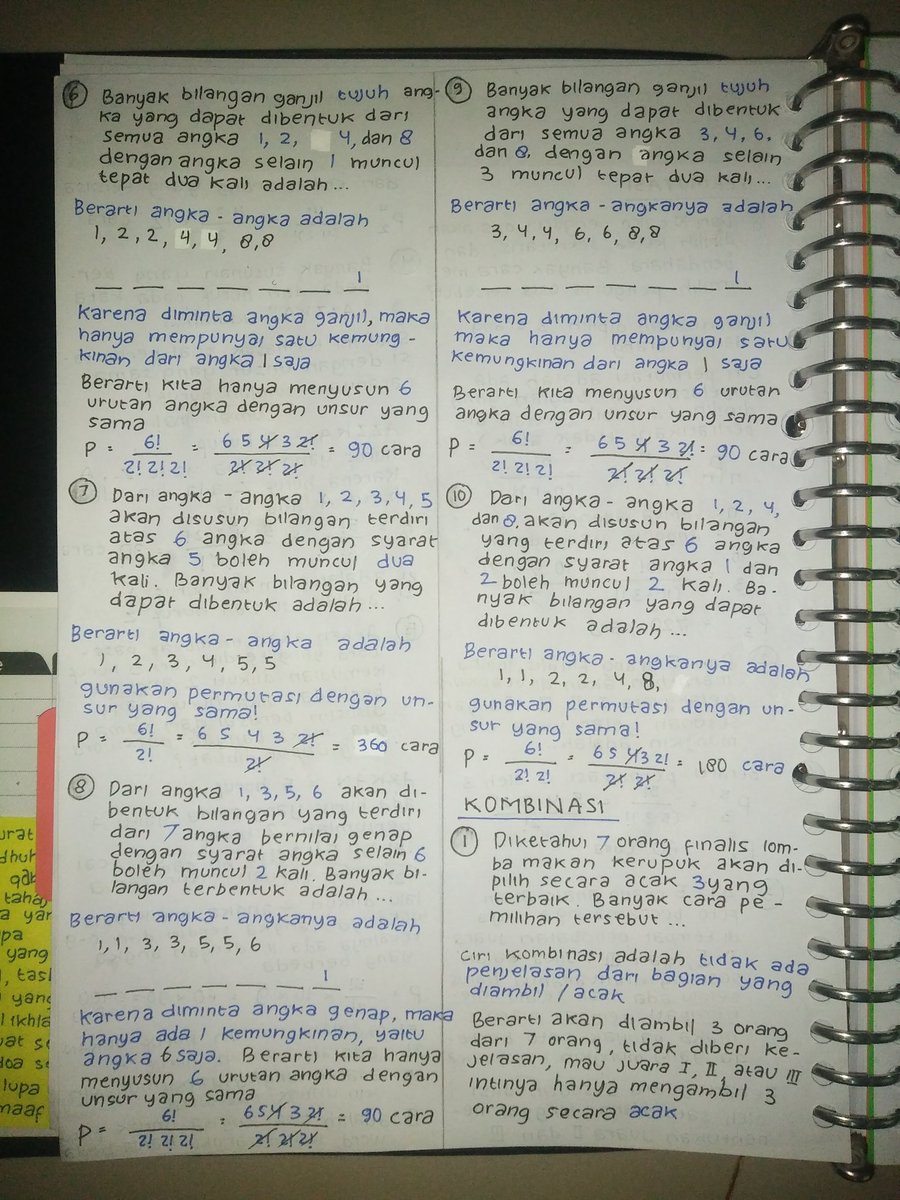 6 Banyak bilangan ganjil tujuh ang-
ka yang dapat dibentuk dari
semua angka 1, 2, 4, dan 8
dengan angka selain 1 muncul
tepat dua kali adalah ...
Berarti angka - angka adalah
1, 2, 2, 4, 4, 8,8
1
Karena diminta angka ganjil, maka
hanya mempunyai satu kemung -
kinan dari angka 1 saja
Berarti kita hanya menyusun 6
urutan angka dengan unsur yang
sama
P = 6! / 2! 2! 2! = 6 5 4 3 2! / 2! 2! 2! = 90 cara
7 Dari angka - angka 1, 2, 3, 4, 5
akan disusun bilangan terdiri
atas 6 angka dengan syarat
angka 5 boleh muncul dua
kali. Banyak bilangan yang
dapat dibentuk adalah ...
Berarti angka - angka adalah
1, 2, 3, 4, 5, 5
gunakan permutasi dengan un-
sur yang sama!
P = 6! / 2! = 6 5 4 3 2! / 2! = 360 cara
8 Dari angka 1, 3, 5, 6 akan di-
bentuk bilangan yang terdiri
dari 7 angka bernilai genap
dengan syarat angka selain 6
boleh muncul 2 kali. Banyak bi-
langan terbentuk adalah ...
Berarti angka - angkanya adalah
1, 1, 3, 3, 5, 5, 6
1
Karena diminta angka genap, maka
hanya ada 1 kemungkinan, yaitu
angka 6 saja. Berarti kita hanya
menyusun 6 urutan angka dengan
unsur yang sama
P = 6! / 2! 2! 2! = 6 5 4 3 2! / 2! 2! 2! = 90 cara
9 Banyak bilangan ganjil tujuh
angka yang dapat dibentuk
dari semua angka 3, 4, 6,
dan 8, dengan angka selain
3 muncul tepat dua kali...
Berarti angka - angkanya adalah
3, 4, 4, 6, 6, 8,8
1
Karena diminta angka ganjil
maka hanya mempunyai satu
kemungkinan dari angka 1 saja
Berarti kita menyusun 6 urutan
angka dengan unsur yang sama
P = 6! / 2! 2! 2! = 6 5 4 3 2! / 2! 2! 2! = 90 cara
10 Dari angka - angka 1, 2, 4,
dan 8, akan disusun bilangan
yang terdiri atas 6 angka
dengan syarat angka 1 dan
2 boleh muncul 2 kali. Ba-
nyak bilangan yang dapat
dibentuk adalah ...
Berarti angka - angkanya adalah
1, 1, 2, 2, 4, 8,
gunakan permutasi dengan un-
sur yang sama!
P = 6! / 2! 2! = 6 5 4 3 2! / 2! 2! = 180 cara
KOMBINASI
1 Diketahui 7 orang finalis lom-
ba makan kerupuk akan di-
pilih secara acak 3 yang
terbaik. Banyak cara pe-
milihan tersebut ...
Ciri kombinasi adalah tidak ada
penjelasan dari bagian yang
diambil / acak
Berarti akan diambil 3 orang
dari 7 orang, tidak diberi ke-
jelasan, mau juara I, II, atau III
intinya hanya mengambil 3
orang secara acak